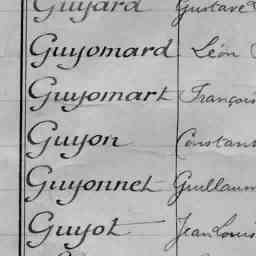 Guyard Gustave
Guyomard Léon
Guyomart François
Guyon Constant
Guyonnet Guillaum
Guyot Jean Louis